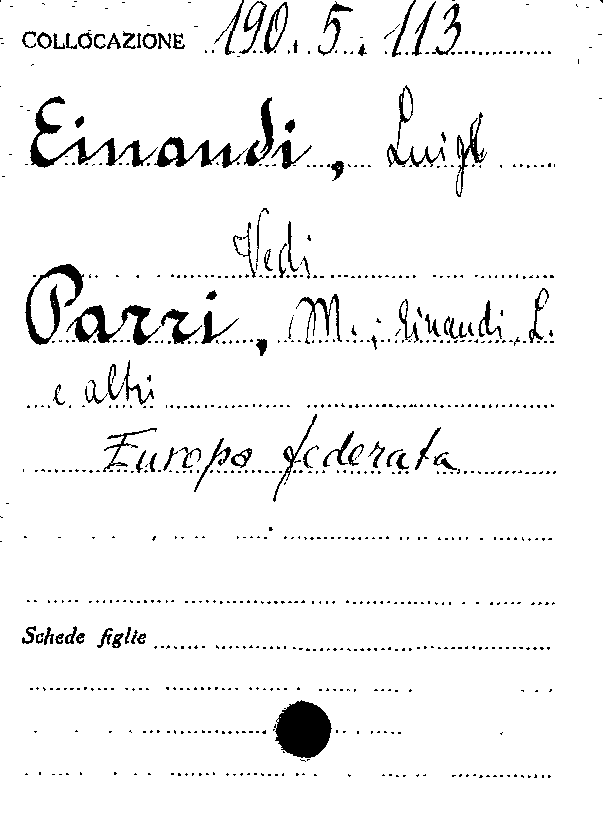 COLLOCAZIONE 190.5.113
Einaudi, Luigi
Vedi
Parri, M.; Einaudi, L.
e altri
Europa federata
Schede figlie